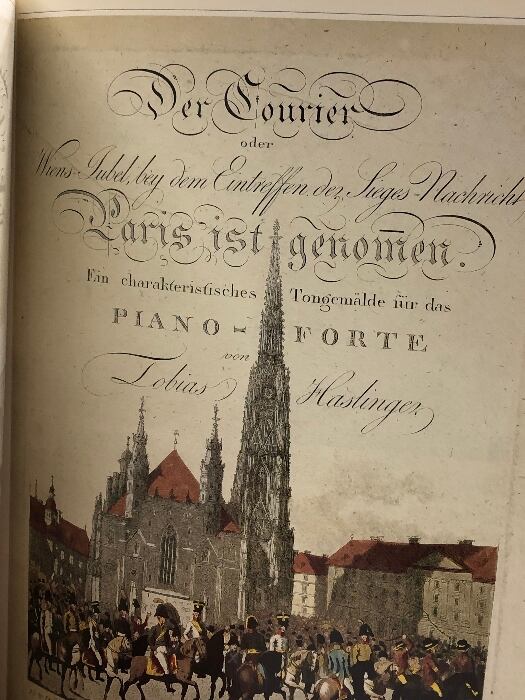 Der Courier
oder
Wiens Jubel, bey dem Eintreffen der Sieges-Nachricht
Paris ist genom̅en.
Ein charakteristisches Tongemälde für das
PIANO-FORTE
von
Tobias Haslinger